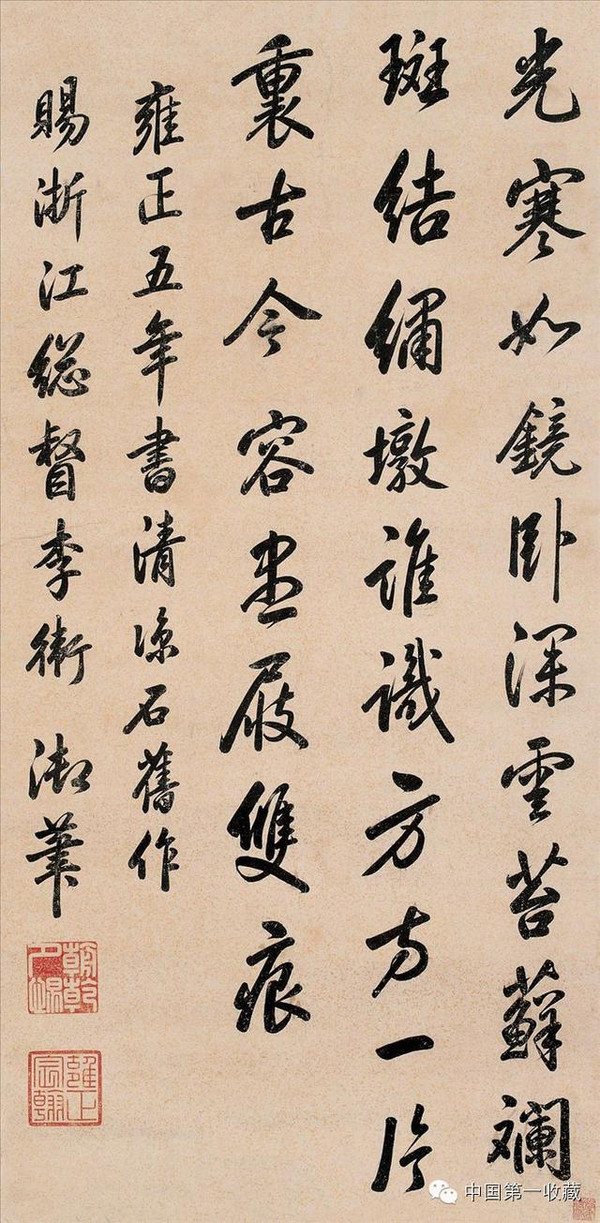 光寒如鏡卧深雲苔蘚斕
斑結繡墩誰識方方一片
裏古今容盡屐雙痕
雍正五年書清涼石舊作
賜浙江總督李衛 御筆
朝乾夕惕
雍正宸翰
中国第一收藏